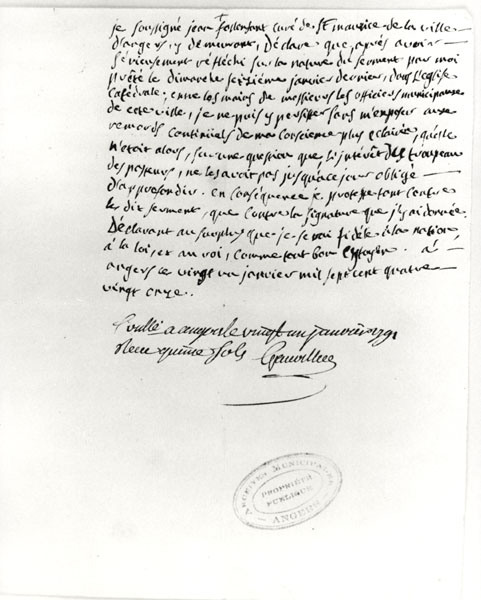 je soussigné jean follenfant curé de St maurice de la ville
d'angers, y demeurant, Déclare que, après avoir
sérieusement réfléchi sur la nature du serment par moi
prêté le dimanche seizième janvier dernier, dans l'église
catédrale; entre les mains de messieurs les officiers municipaux
de cete ville, je ne puis y persister sans m'exposer aux
remords continüels de ma conscience plus eclairée, qu'elle
n'etait alors, sur une question que l'intérêt des troupeau
des pasteurs, ne les avoit pas jusqu'à ce jour obligé
d'approfondir. en conséquence je proteste tant contre
le dit serment, que contre la signature que j'y ai donnée.
Déclarant au surplus que je serai fidèle à la nation,
à la loi, et au roi, comme tout bon citoyen. à
angers le vingt un janvier mil sept cent quatre
vingt onze.
Conllé a angers le vingt un janvier 1791
Reçu quinze sols
ARCHIVES MUNICIPALES
PROPRIÉTÉ
PUBLIQUE
ANGERS